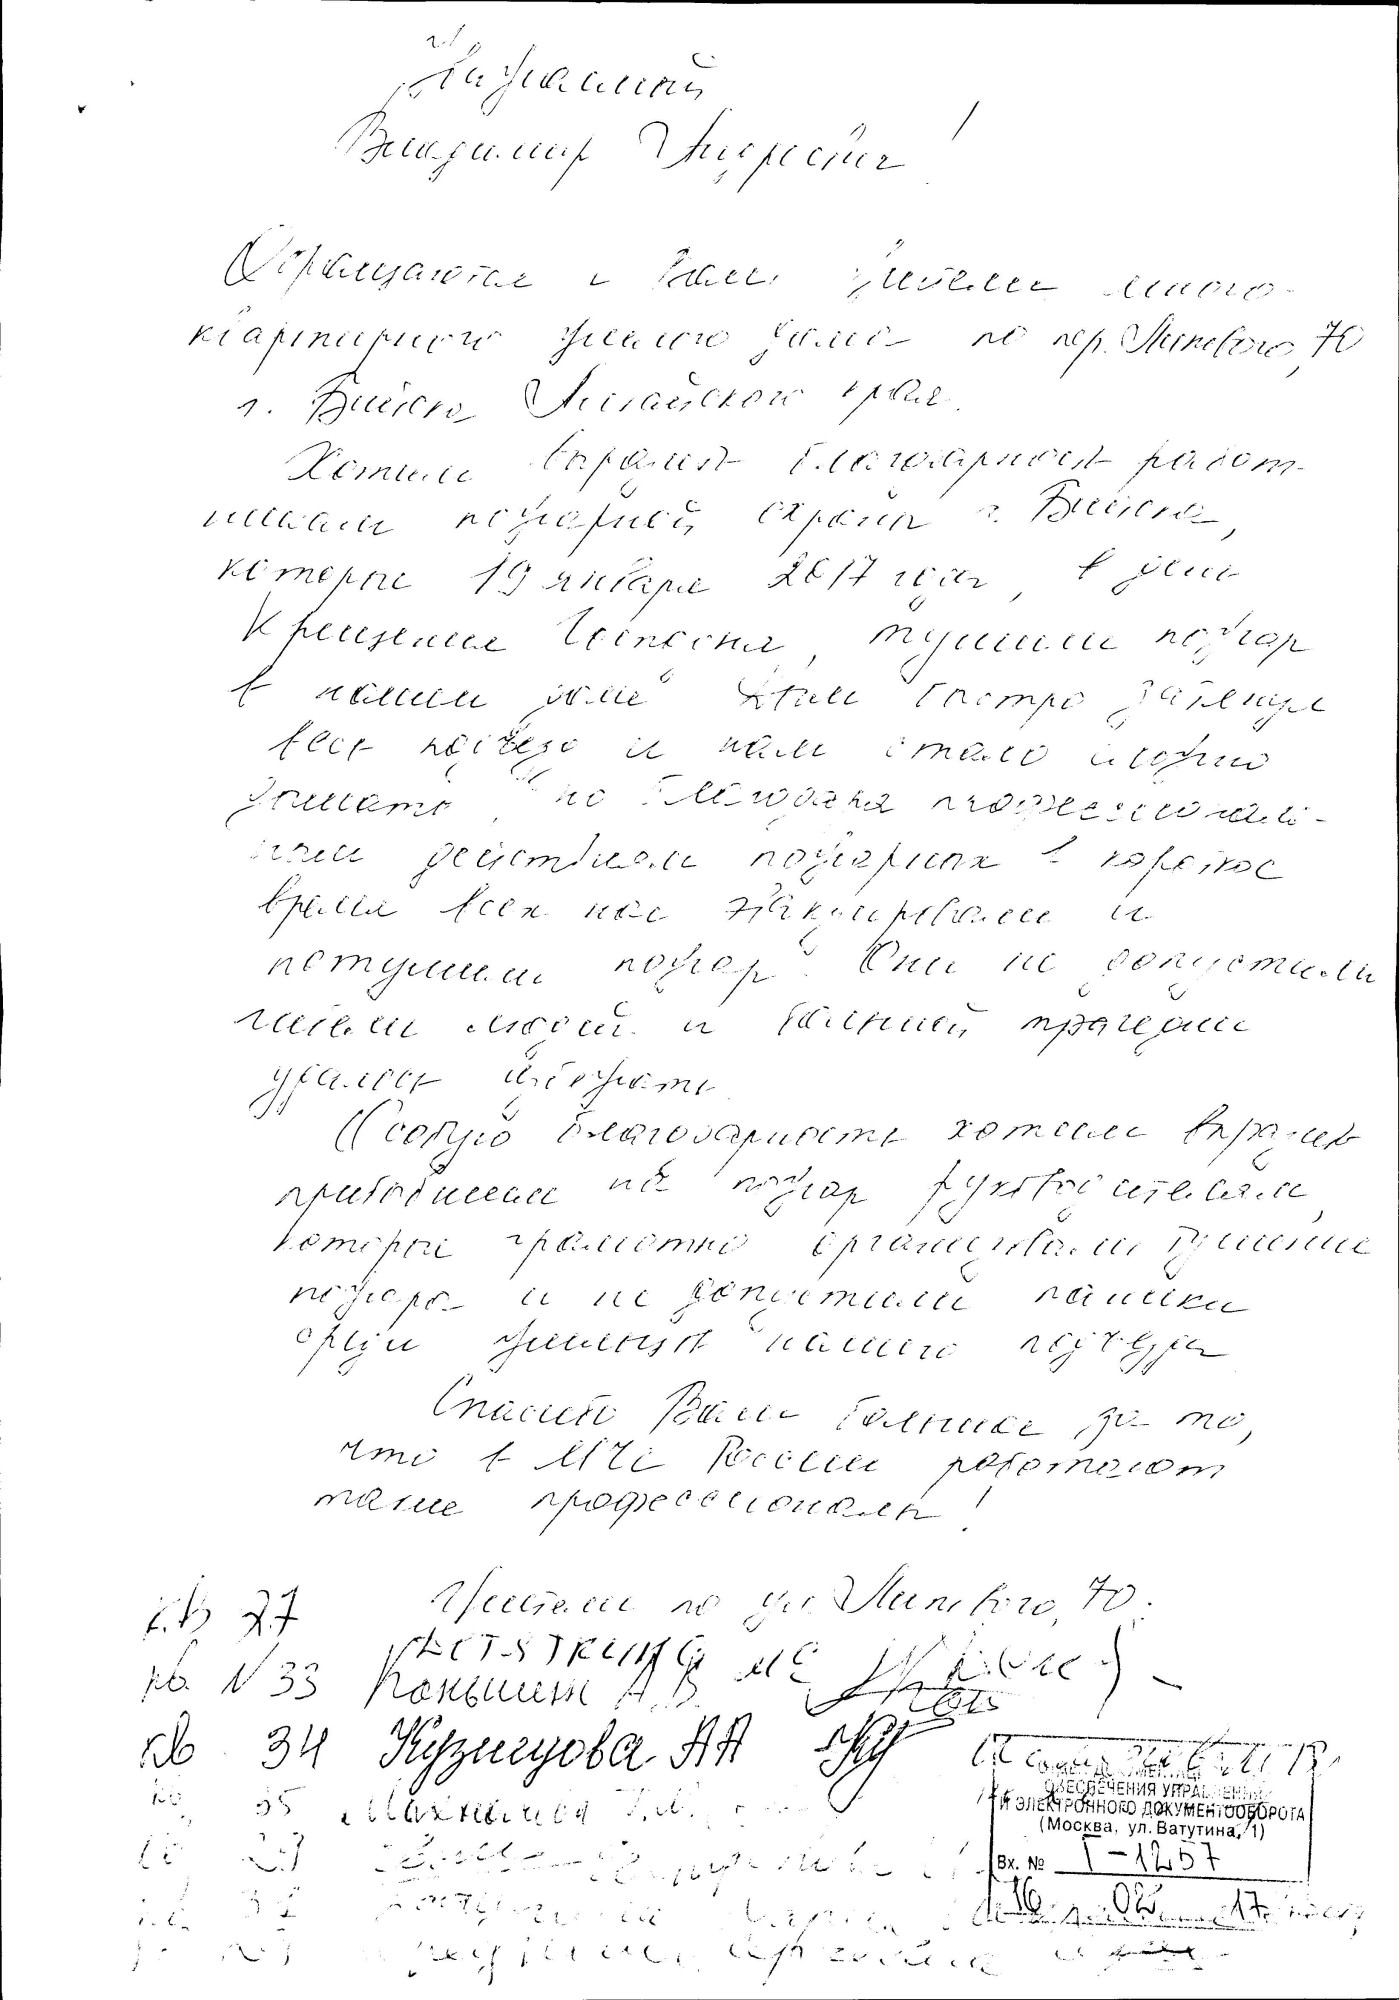 Уважаемый
Владимир Андреевич!
Обращаются к Вам жители много-
квартирного жилого дома по пер. Липового, 70
г. Бийска Алтайского края.
Хотим выразить благодарность работ-
никам пожарной охраны г. Бийска,
которые 19 января 2017 года, в день
Крещения Господня, тушили пожар
в нашем доме. Дым быстро затянул
весь подъезд и нам стало сложно
дышать, но благодаря профессиональ-
ным действиям пожарных в короткое
время всех нас эвакуировали и
потушили пожар. Они не допустили
гибели людей и большой трагедии
удалось избежать.
Особую благодарность хотим выразить
прибывшим на пожар руководителям,
которые грамотно организовали тушение
пожара и не допустили паники
среди жильцов нашего подъезда
Спасибо Вам большое за то,
что в МЧС России работают
такие профессионалы!
Жители по ул Липового, 70.
кв 27
кв. N 33 Коньшин А.В.
кв 34 Кузнецова АА
кв 35
ОБЕСПЕЧЕНИЯ УПРАВЛЕНИЯ
И ЭЛЕКТРОННОГО ДОКУМЕНТООБОРОТА
(Москва, ул. Ватутина, 1)
Вх. № Г-1257
16 02 17